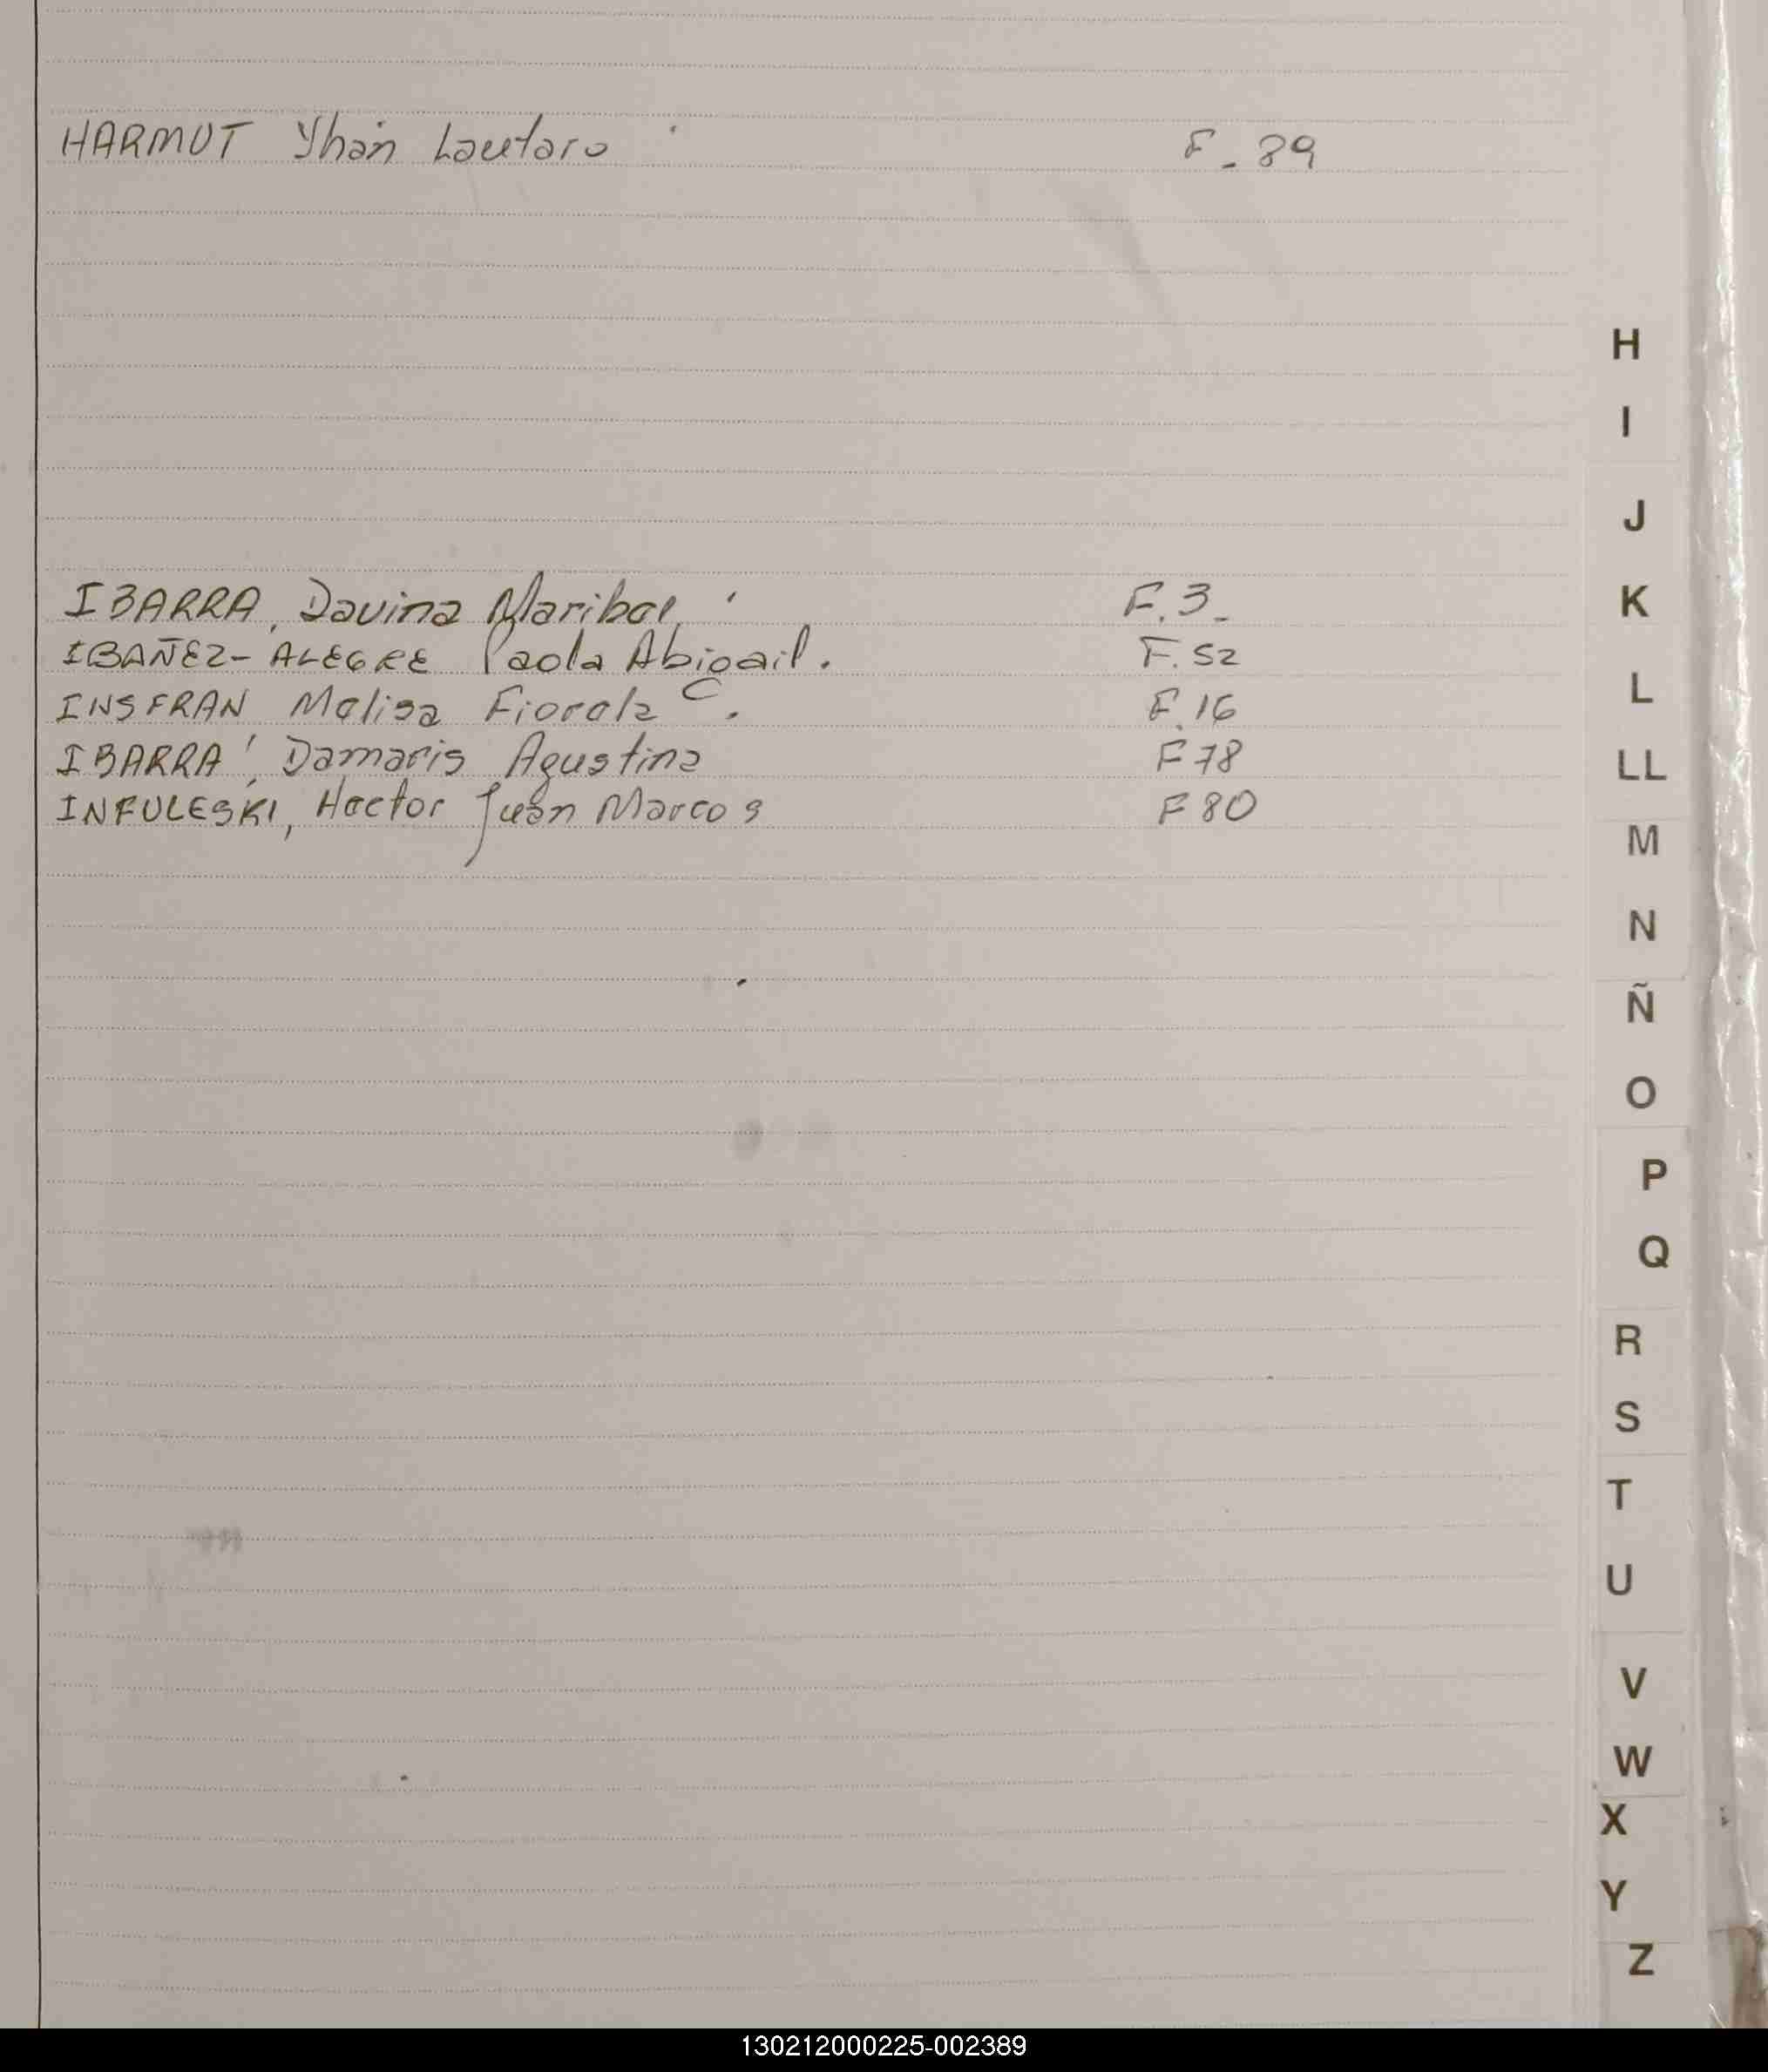 HARMUT Yhan Lautaro F_ 89
H
I
J
IBARRA, Davina Maribel F.3_
K
IBAÑEZ-ALEGRE Paola Abigail. F.52
L
INSFRAN Melisa Fiorela. F.16
IBARRA, Damaris Agustina F78
LL
INFULESKI, Hector Juan Marcos F80
M
N
Ñ
O
P
Q
R
S
T
U
V
W
X
Y
Z
130212000225-002389